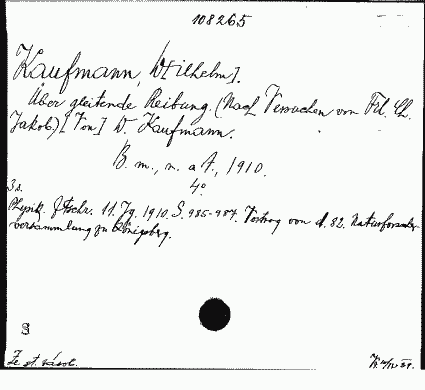 108265
Kaufmann, W[ilhelm].
Über gleitende Reibung. (Nach Versuchen von Frl. Ch.
Jakob.) [Von] W. Kaufmann.
B. m., n. a A., 1910.
4°.
3 s.
Physik. Ztschr. 11. Jg. 1910. S. 985-987. Vortrag von d. 82. Naturforscher-
versammlung zu Königsberg.
Ze st. vásol.